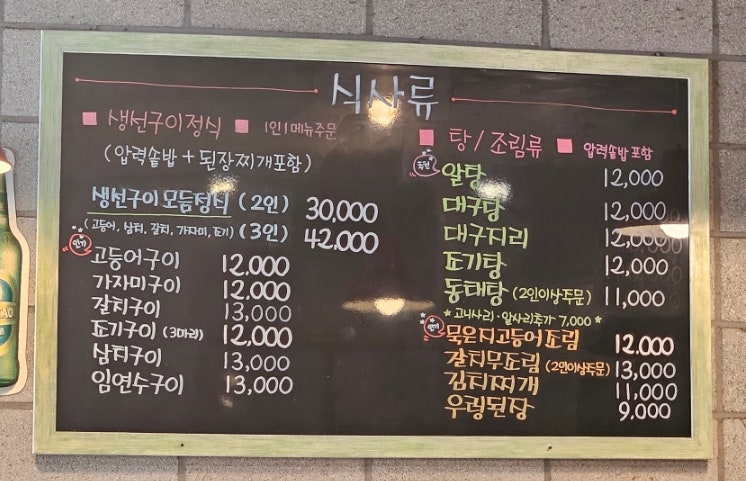 식사류
■ 생선구이정식 ■ 1인1메뉴주문
(압력솥밥 + 된장찌개포함)
생선구이 모듬정식 (2인) 30,000
(고등어, 삼치, 갈치, 가자미, 조기) (3인) 42,000
인기
고등어구이 12,000
가자미구이 12,000
갈치구이 13,000
조기구이 (3마리) 12,000
삼치구이 13,000
임연수구이 13,000
■ 탕/조림류 ■ 압력솥밥 포함
알탕 12,000
대구탕 12,000
대구지리 12,000
조기탕 12,000
동태탕 (2인이상주문) 11,000
*고니사리·알사리추가 7,000*
인기
묵은지고등어조림 12,000
갈치무조림 (2인이상주문) 13,000
김치찌개 11,000
우렁된장 9,000